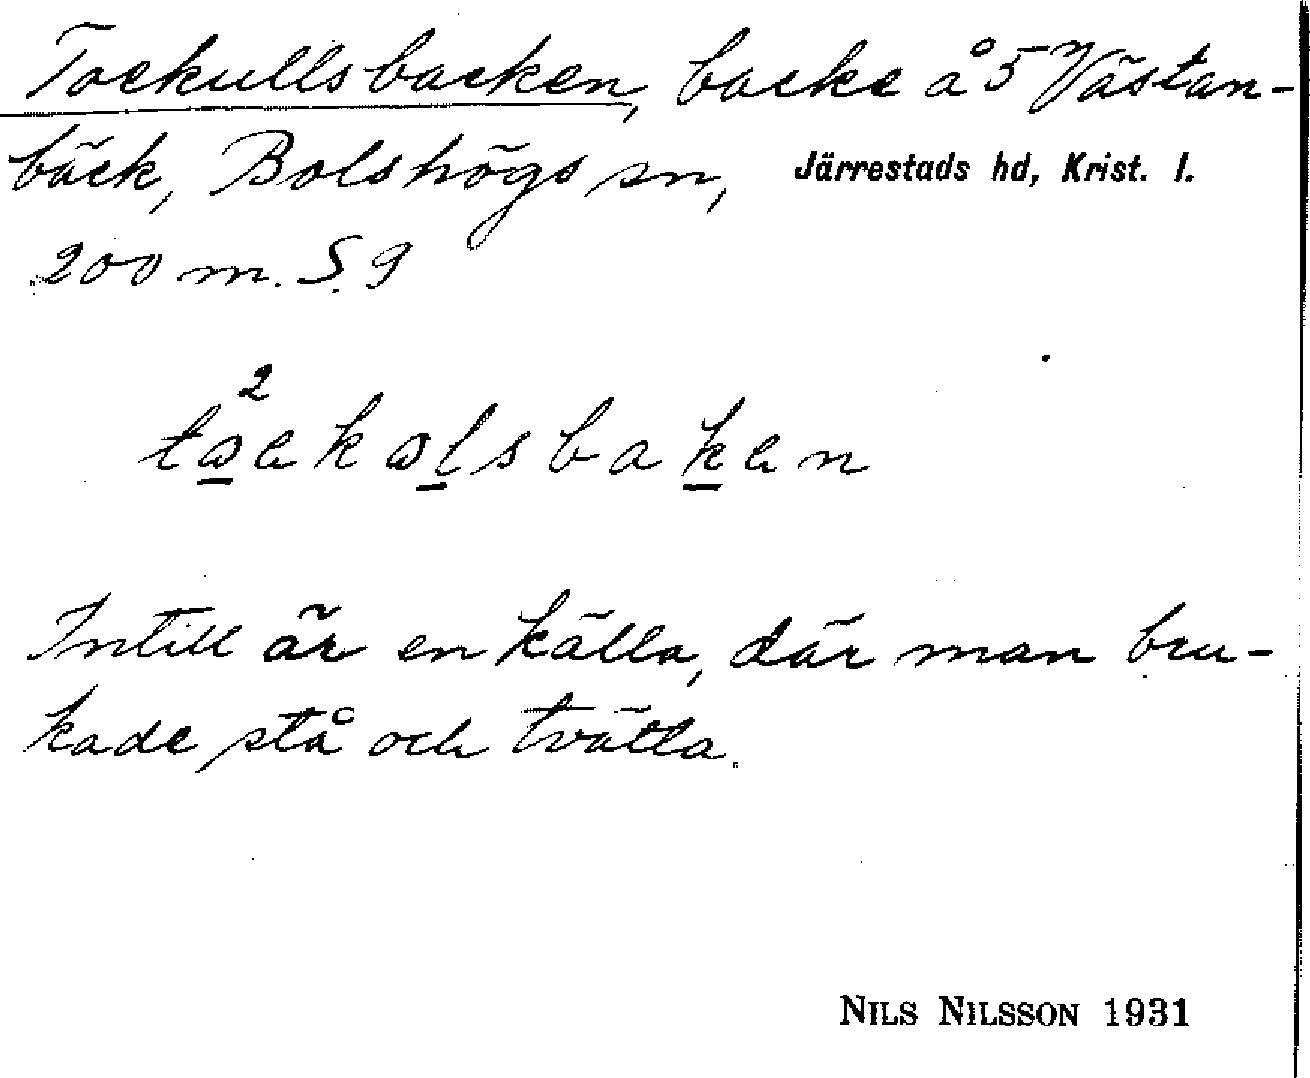 Toekullsbacken, backe å 5 Västan-
bäck, Bolshögs sn, Järrestads hd, Krist. l.
200 m. S. 9
Intill är en källa, där man bru-
kade stå och tvätta.
NILS NILSSON 1931